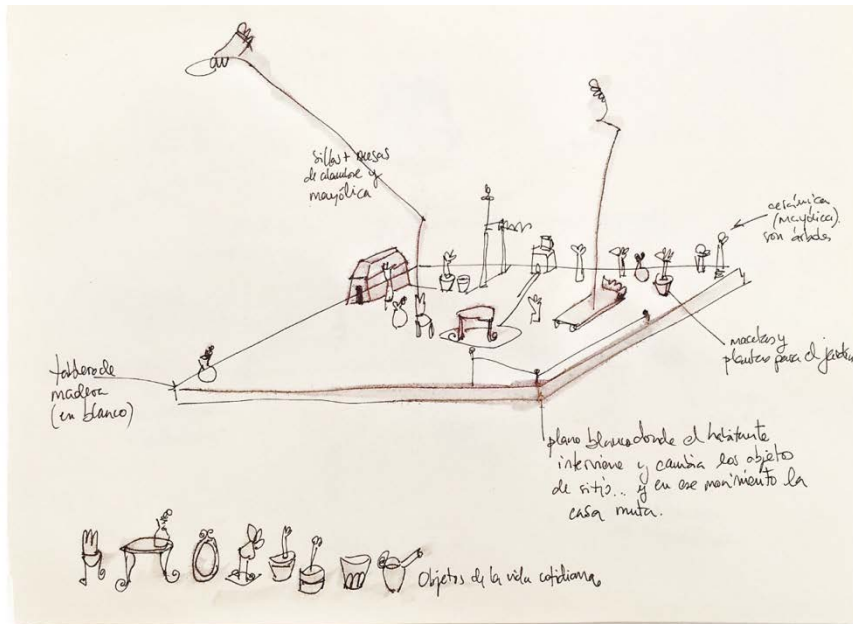 sillas + mesas
de alambre y
mayólica
cerámica
(mayólica)
son árboles
macetas y
plantas para el jardín
tablero de
madera
(en blanco)
plano blanco donde el habitante
interviene y cambia los objetos
de sitio... y en ese movimiento la
casa muta.
Objetos de la vida cotidiana